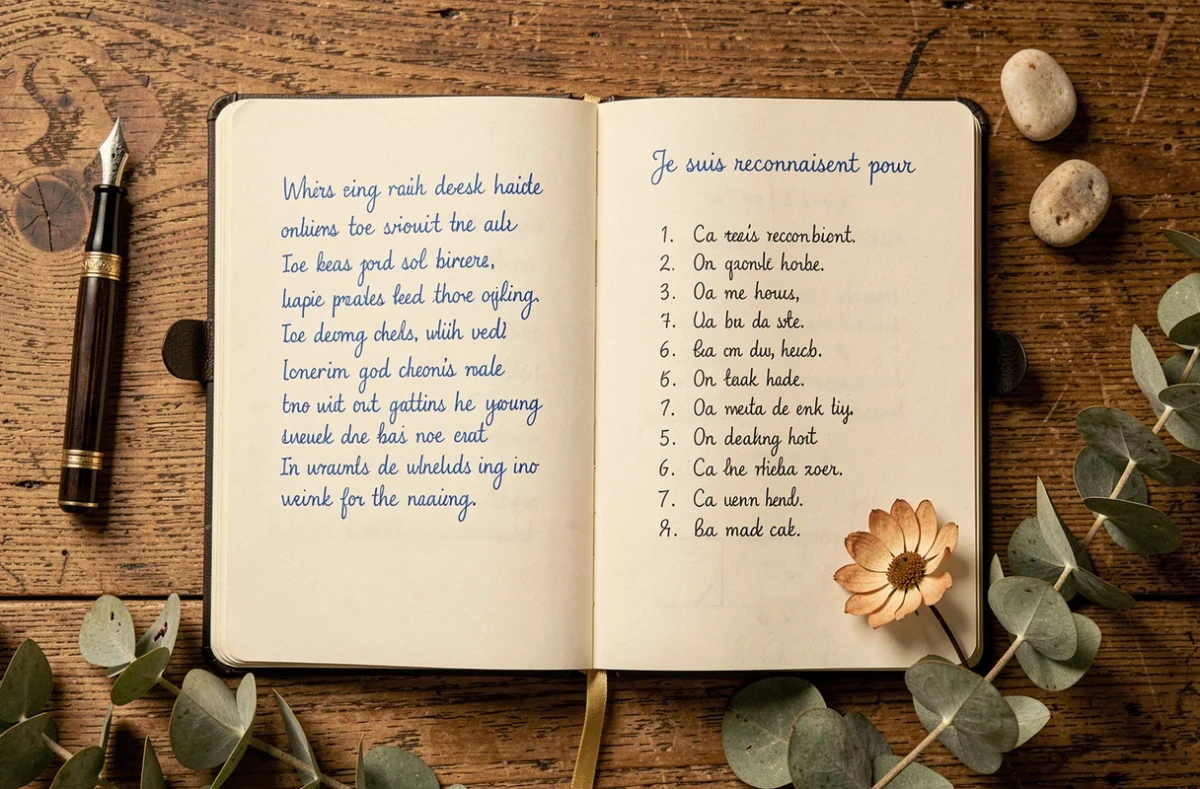 Whers eing raih deesk haicte
onluens toe sriouit tne aulr
Toe keas jord sol bircere,
luapie prales feed those oijking.
Toe deomg chels, wlih vedl
Ionerim god cheonis male
tno wit out gattins he young
sueuek dne bas noe erat
In wraunts de wlneluds ing ino
weink for the naaung.
Je suis reconnaisent pour
1. Ca reais recconbiont.
2. On qaonslc honbe.
3. Oa me hows,
7. Ua bu da ste.
6. Ba cm du, heucb.
6. On taak hade.
7. Oa meita de enk tiy.
5. On dealing hort
6. Ca lhe rhieba zoer.
7. Ca uenn hend.
8. Ba made cak.